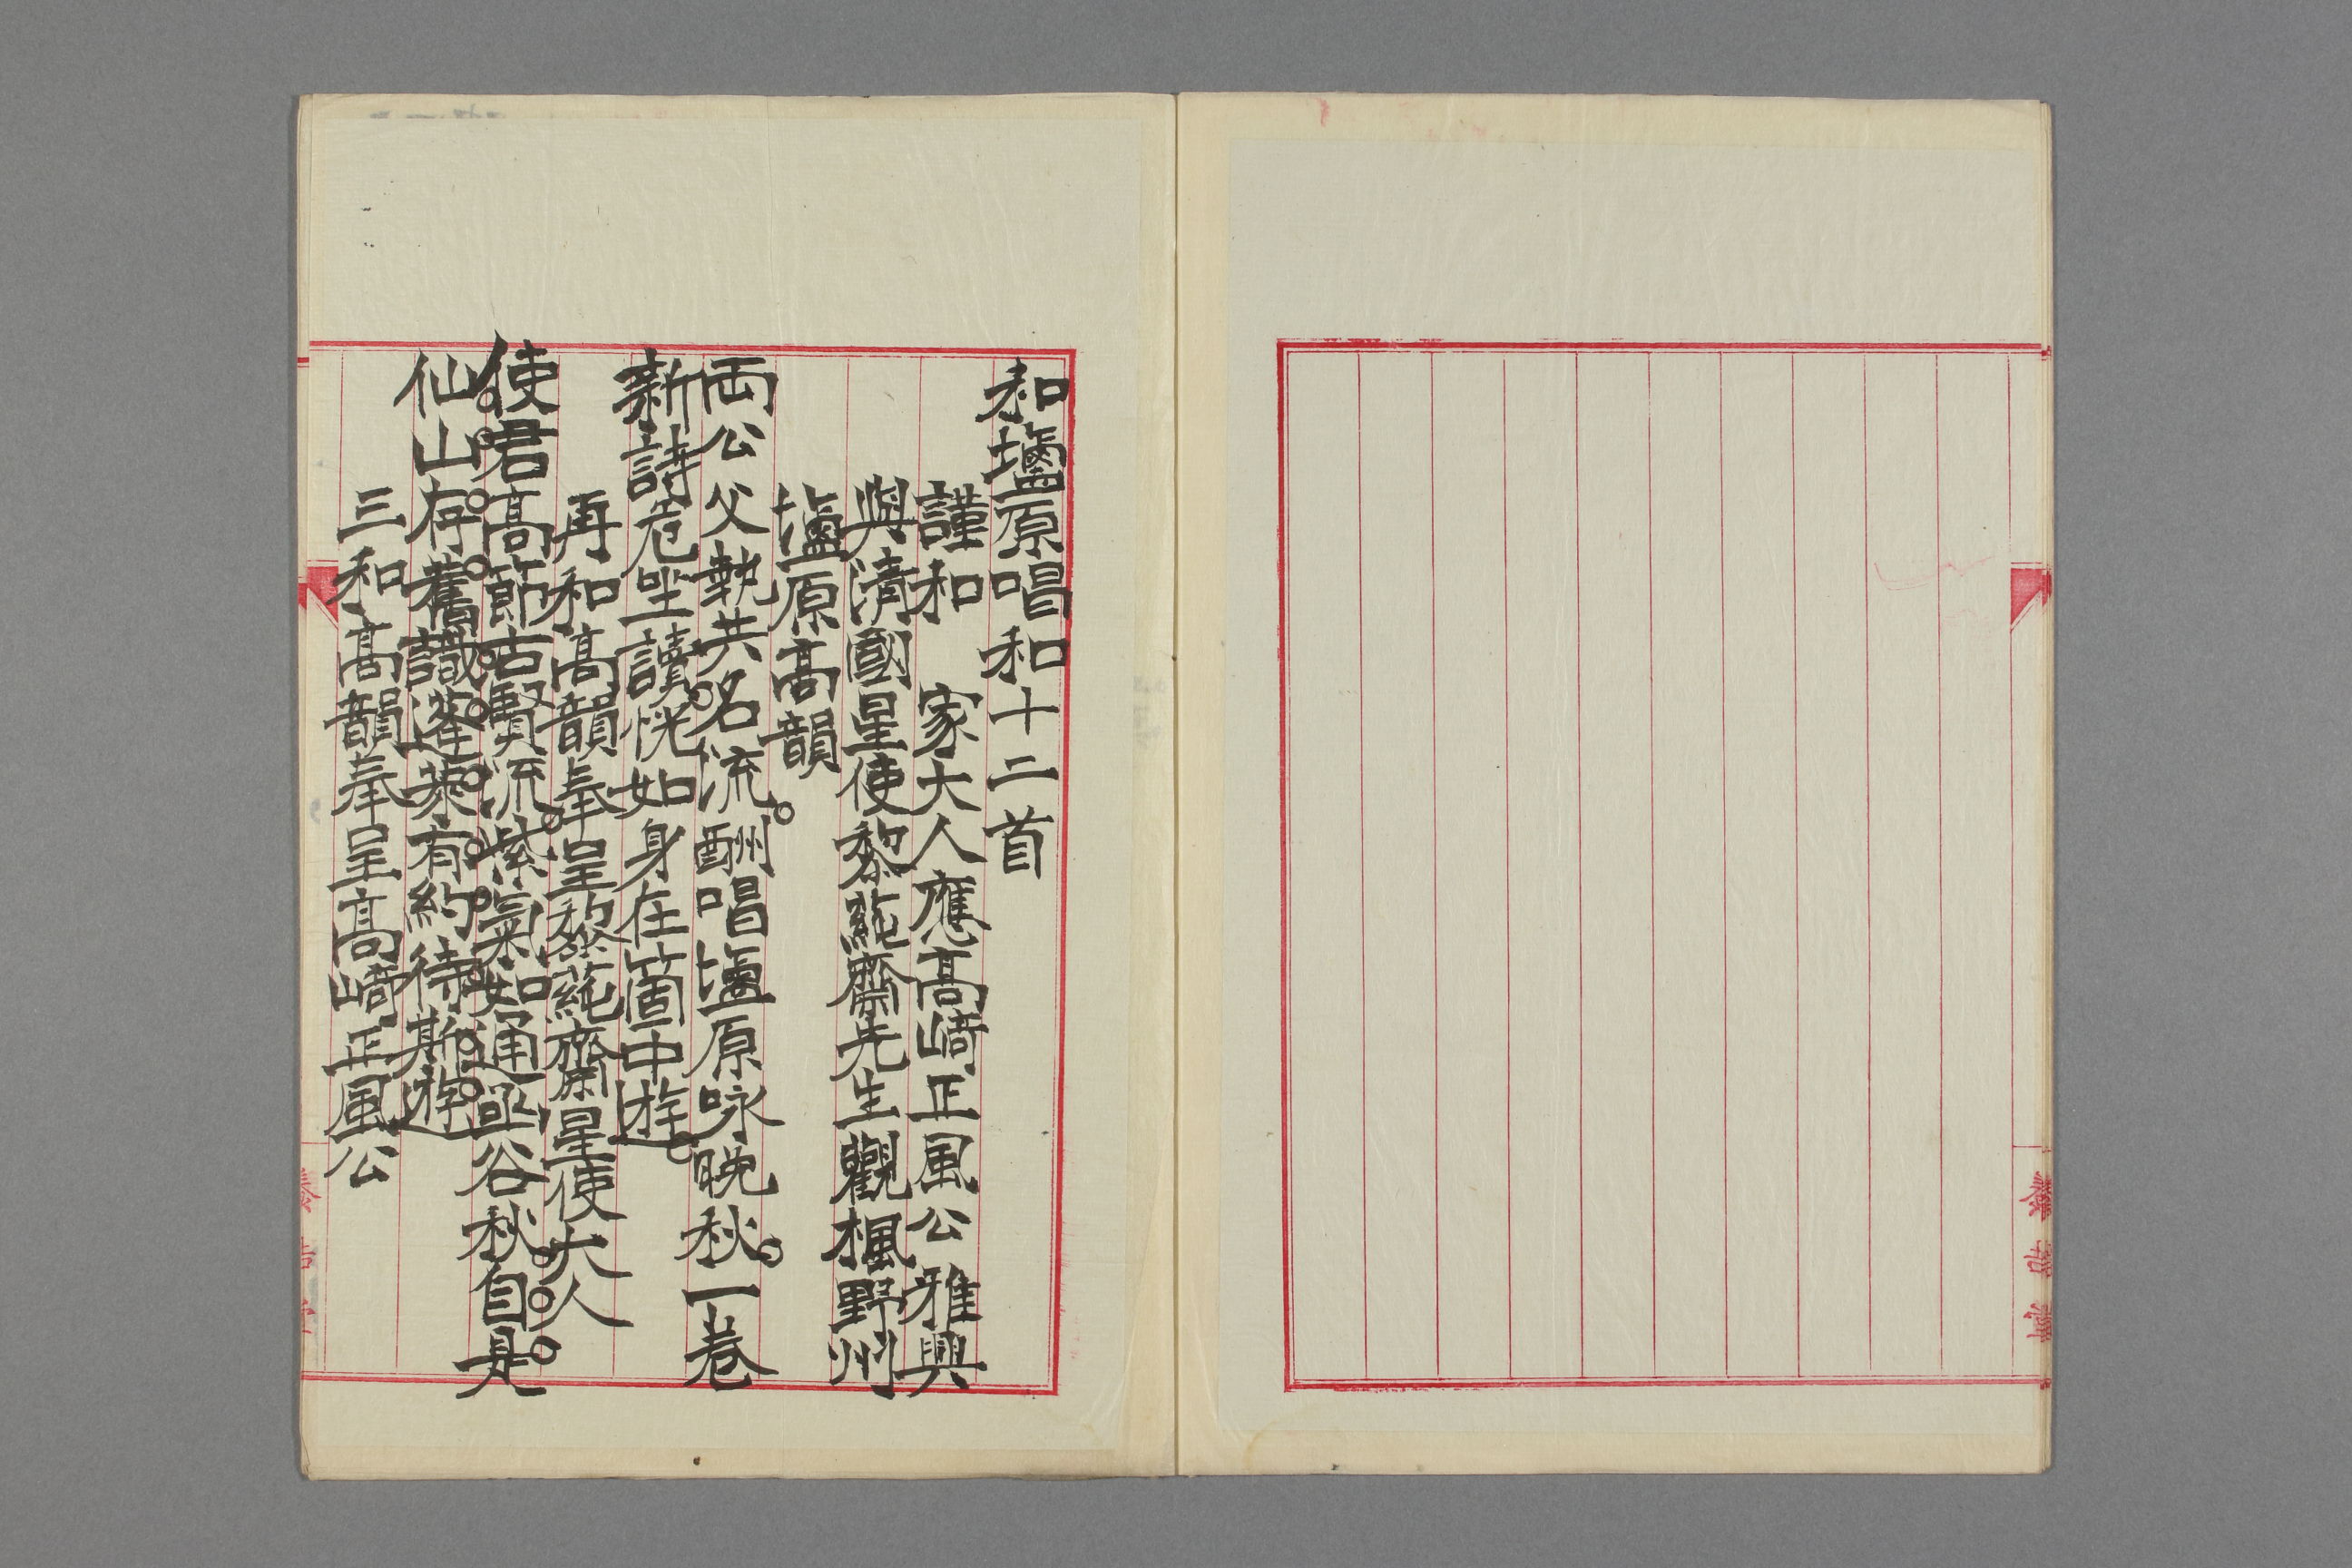 和鹽原唱和十二首
謹和 家大人應高崎正風公雅興
與清國星使黎蒓齋先生觀楓野州
塩原高韻
兩公父執共名流酬唱塩原咏晚秋一卷
新詩危坐讀恍如身在箇中遊
再和高韻奉呈黎蒓齋星使大人
使君高節古賢流紫氣如通亟谷秋自是
仙山存舊識蓬萊有約待斯遊
三和高韻奉呈高崎正風公